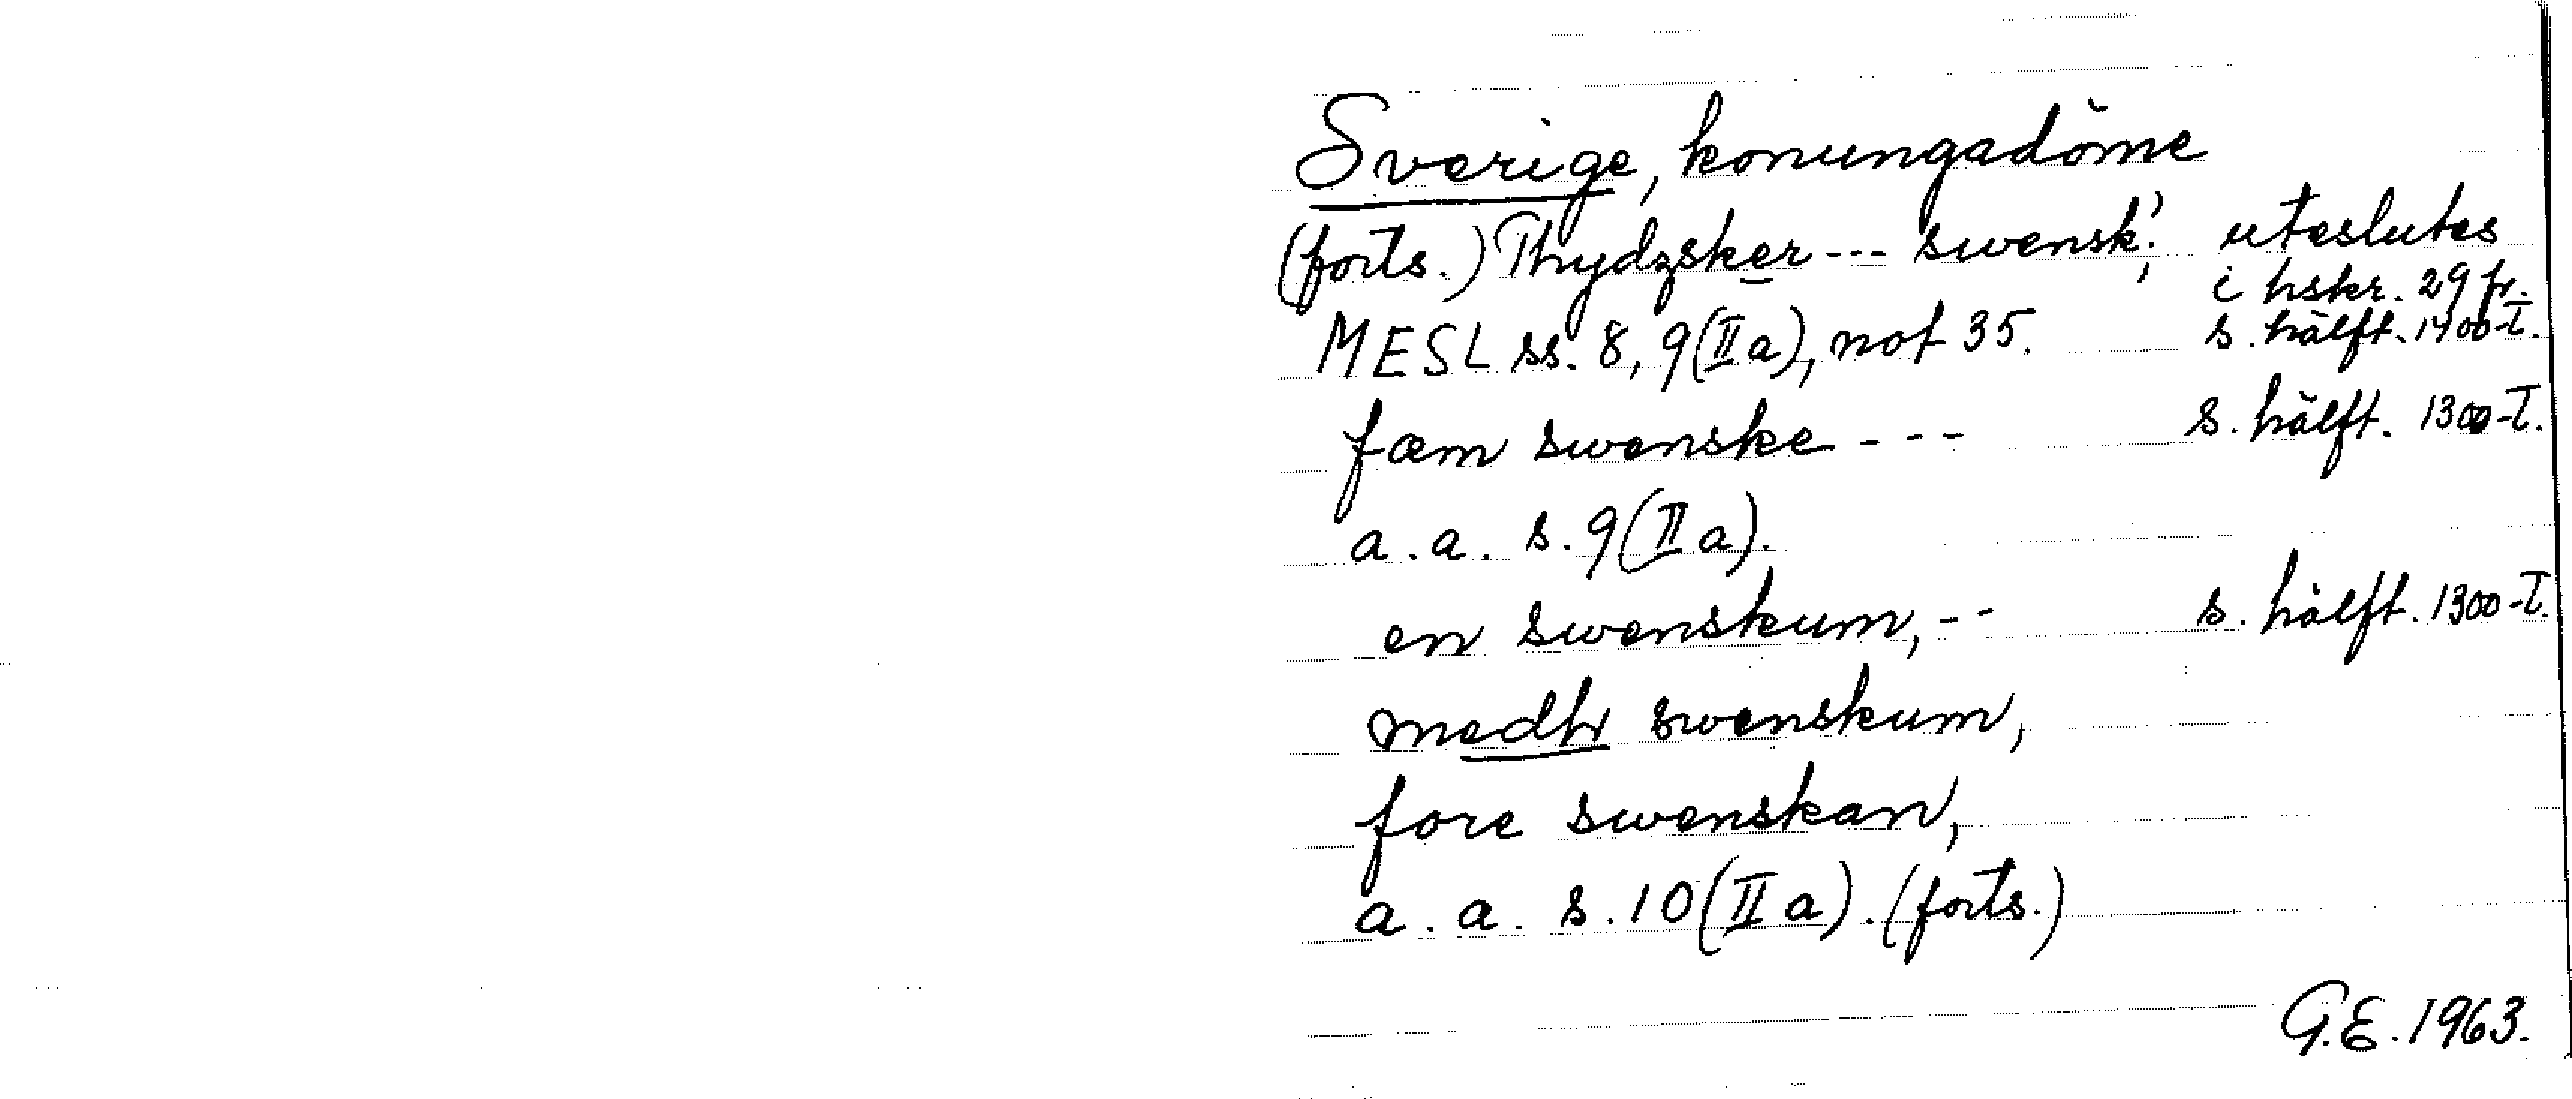 Sverige, konungadöme
(forts.) Thydzsker --- swensk'; uteslutes
i hskr. 29 fr.
MESL ss. 8, 9 (II a), not 35. s. hälft. 1400-T.
fæm swenske --- s. hälft. 1300-T.
a.a. s. 9 (II a).
en swenskum, -- s. hälft. 1300-T.
medhr swenskum,
fore swenskan,
a.a. s. 10 (II a). (forts.)
G.E. 1963.